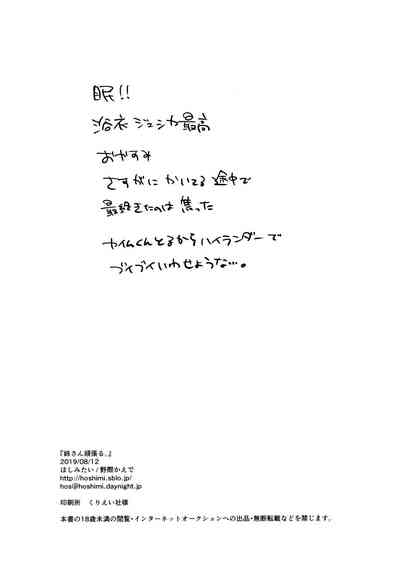 眠!!
浴衣ジェシカ最高
おやすみ
さすがにかいてる途中で
最終きたのは焦った
ケイムくんとるからハイランダーで
ブイブイいわせような…。
『姉さん頑張る。』
2019/08/12
ほしみたい/野際かえで
http://hoshimi.sblo.jp/
hos@hoshimi.daynight.jp
印刷所 くりえい社様
本書の18歳未満の閲覧・インターネットオークションへの出品・無断転載などを禁じます。